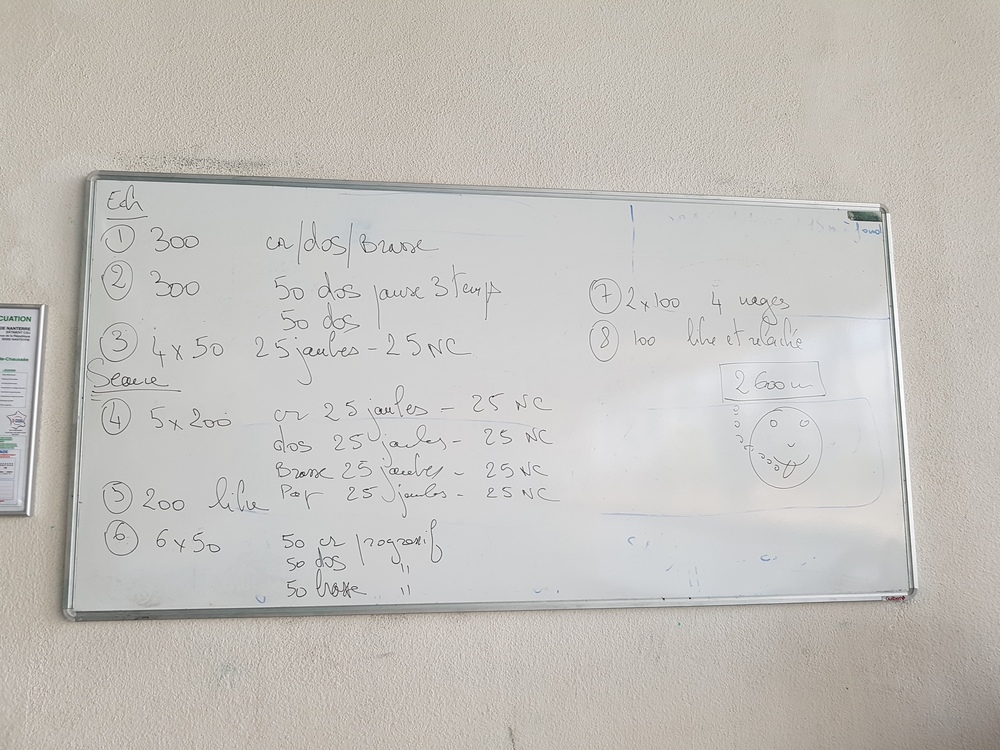 Ech
① 300 cr/dos/Brasse
② 300 50 dos pause 3 temps
50 dos
③ 4x50 25 jambes - 25 NC
Séance
④ 5x200 cr 25 jambes - 25 NC
dos 25 jambes - 25 NC
Brasse 25 jambes - 25 NC
Pap 25 jambes - 25 NC
⑤ 200 libre
⑥ 6x50 50 cr progressif
50 dos "
50 brasse "
⑦ 2x100 4 nages
⑧ 100 libre et relâché
2600m
fond
CUATION
DE NANTERRE